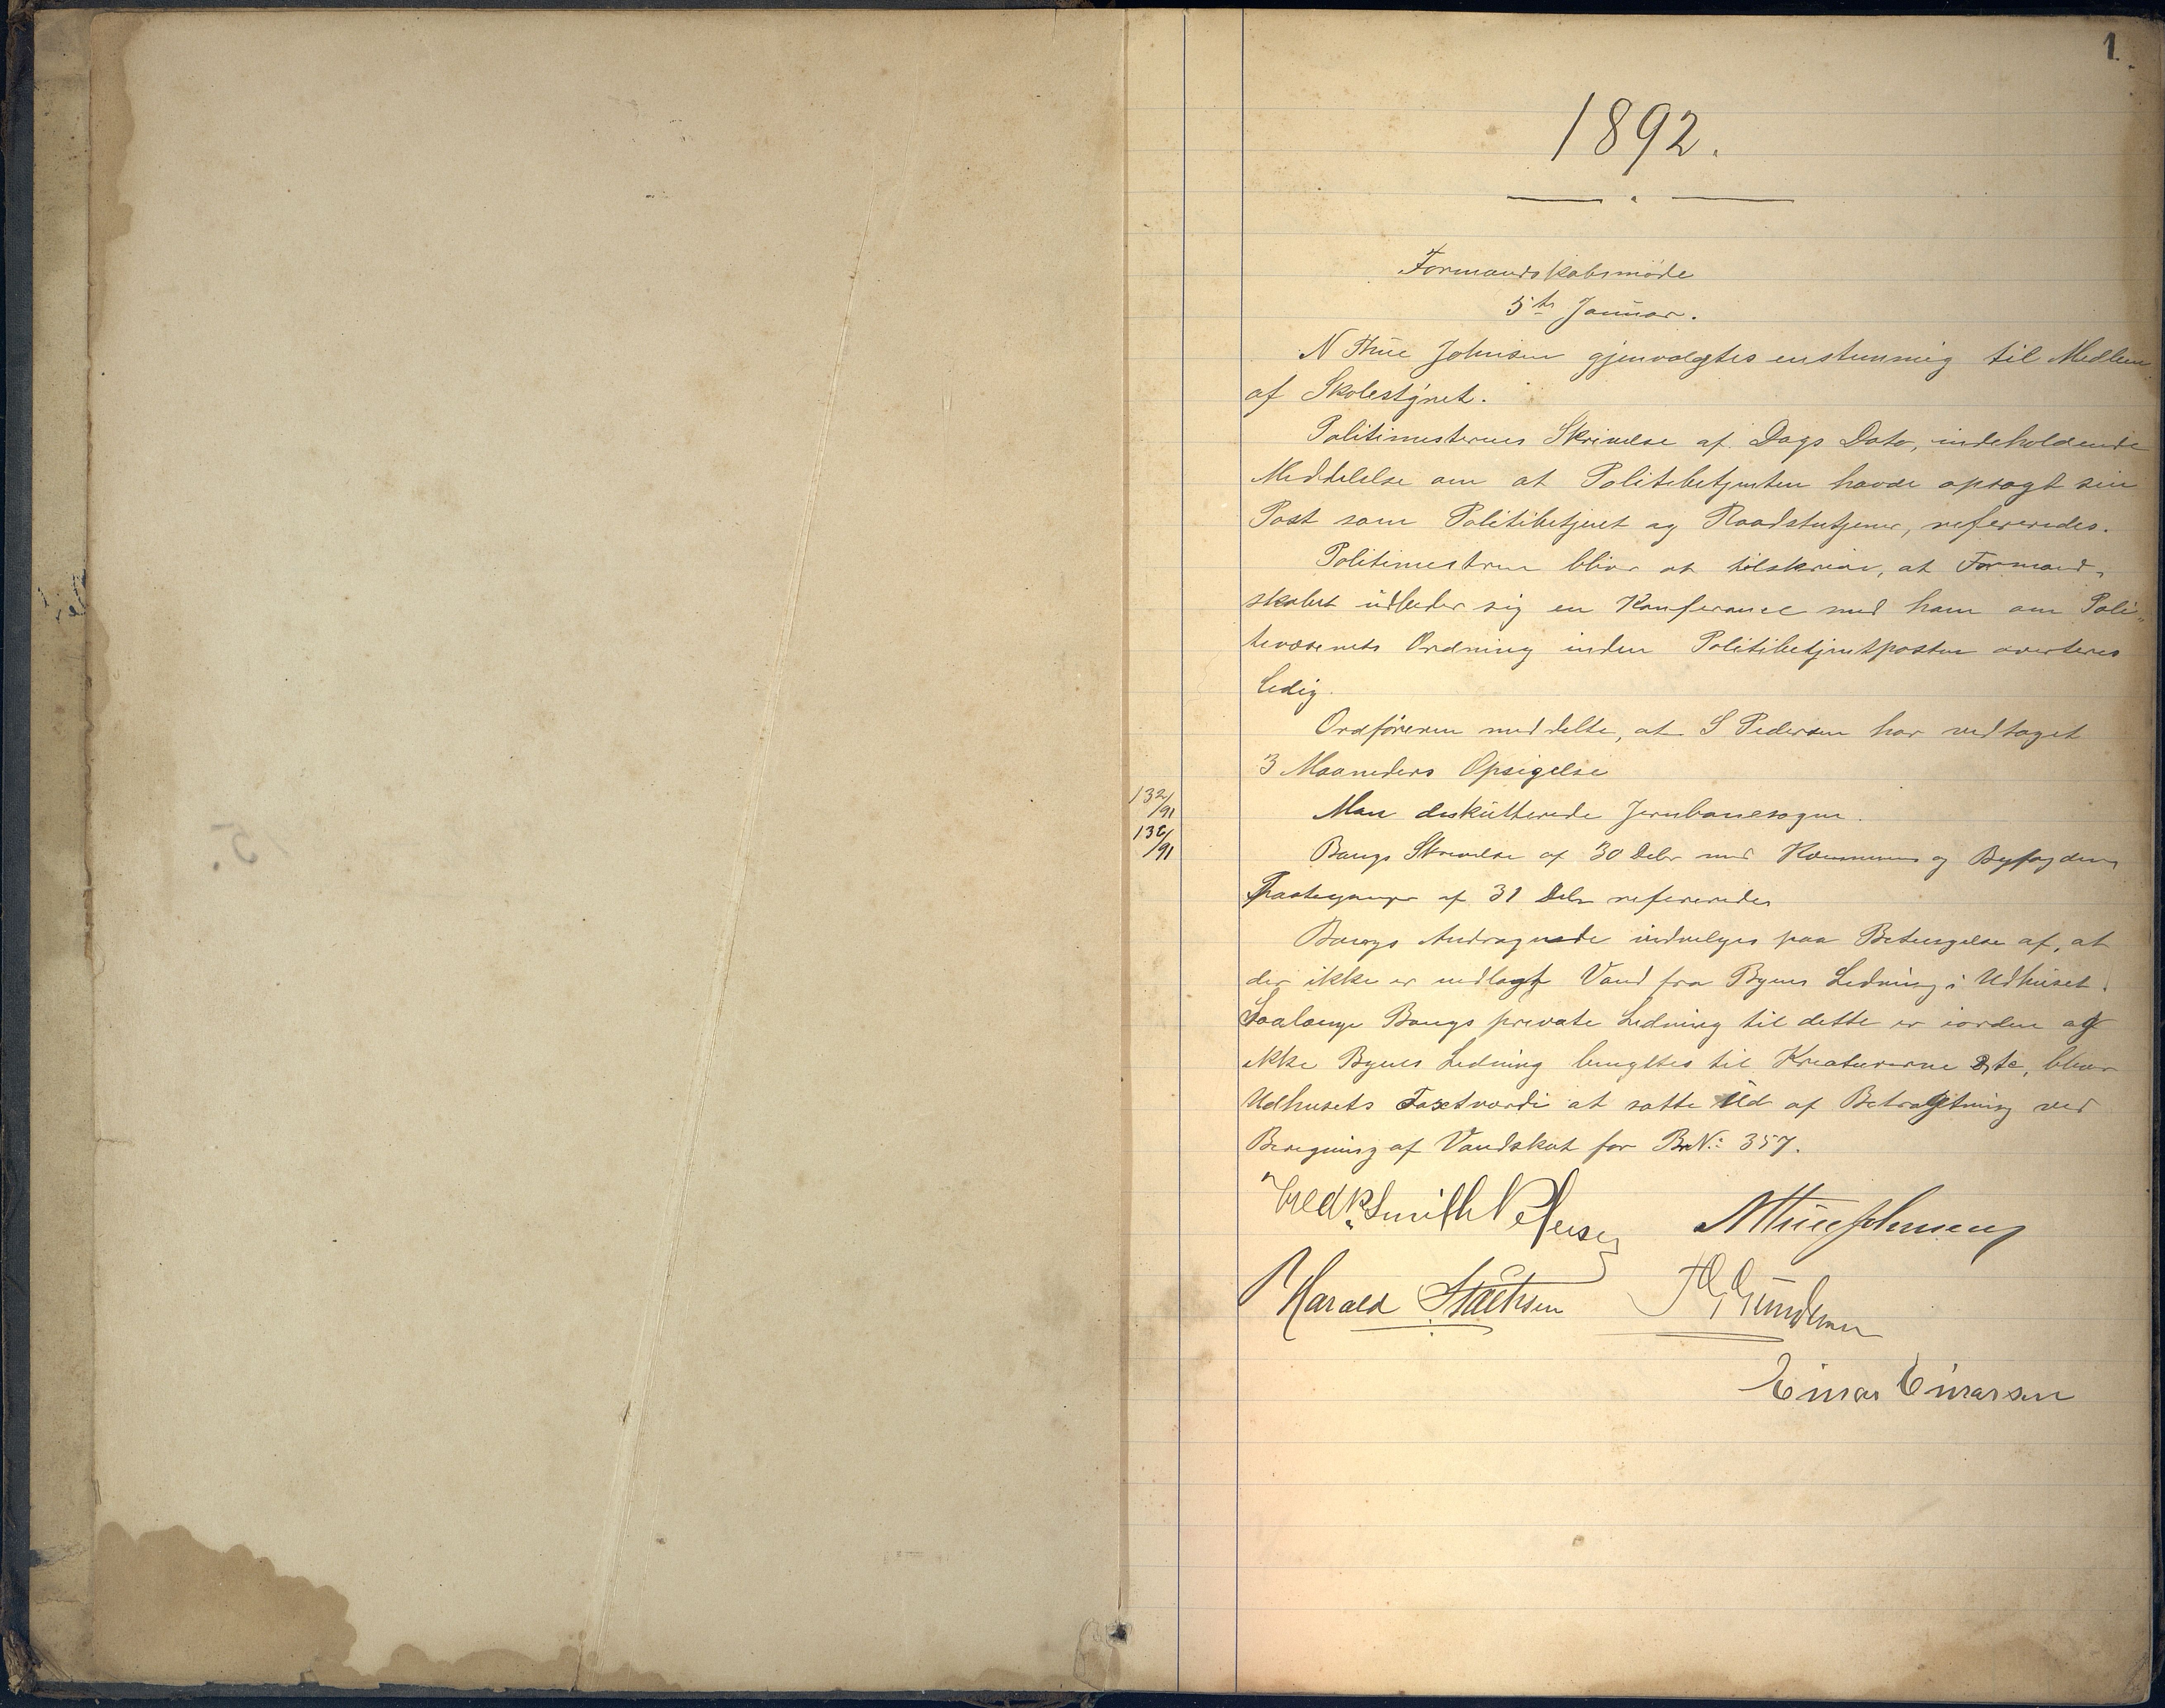 1.
1892.
Formandskabsmöde
5te Januar.
N Thue Johnsen gjenvalgtes enstemmig til Medlem
af Skolestyret.
Politimesterens Skrivelse af Dags Dato, indeholdende
Meddelelse om at Politibetjenten havde opsagt sin
Post som Politibetjent og Raadstutjener, refereredes.
Politimesteren bliver at tilskrive, at Formand„
skabet udbeder sig en Konferance med ham om Poli„
tivæsenets Ordning inden Politibetjentposten averteres
ledig.
Ordföreren meddelte, at S Pedersen har vedtaget
3 Maaneders Opsigelse
132/91 Man diskutterede Jernbanesagen.
132/91 Bangs Skrivelse af 30 Debr med Kæmnerens og Byfogdens
Paategninger af 31 Debr refereredes
Bangs Andragende indvilges paa Betingelse af, at
der ikke er indlagt Vand fra Byens Ledning i Udhuset.
Saalænge Bangs private Ledning til dette er iorden og
ikke Byens Ledning benyttes til Kreaturerne etc, bliver
Udhusets Taxtværdi at sætte ud af Betragtning ved
Beregning af Vandskat for BrN: 357.
Fredk Smith Petersen N Thue Johnsen
Harald Staehsen Gundersen
Einar Einarsen